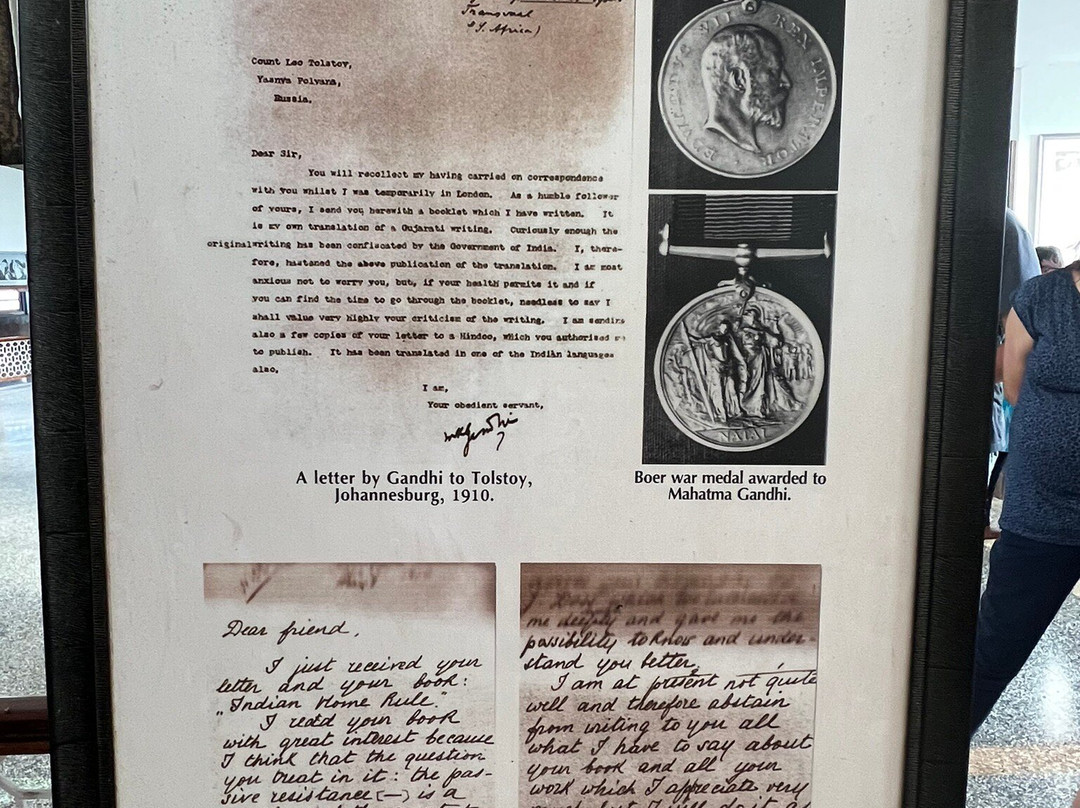 Transvaal
S. Africa)
Count Leo Tolstoy,
Yasnya Polyana,
Russia.
Dear Sir,
You will recollect my having carried on correspondence
with you whilst I was temporarily in London. As a humble follower
of yours, I send you herewith a booklet which I have written. It
is my own translation of a Gujarati writing. Curiously enough the
originalwriting has been confiscated by the Government of India. I, there-
fore, hastened the above publication of the translation. I am most
anxious not to worry you, but, if your health permits it and if
you can find the time to go through the booklet, needless to say I
shall value very highly your criticism of the writing. I am sending
also a few copies of your letter to a Hindoo, which you authorised
to publish. It has been translated in one of the Indian languages
also,
I am,
Your obedient servant,
MKGandhi
A letter by Gandhi to Tolstoy,
Johannesburg, 1910.
EDWARDVS VII REX IMPERATOR
NATAL
Boer war medal awarded to
Mahatma Gandhi.
Dear friend,
I just received your
letter and your book:
"Indian Home Rule".
I read your book
with great interest because
I think that the question
you treat in it: the pas-
sive resistance (—) is a
me deeply and gave me the
possibility to know and under-
stand you better.
I am at present not quite
well and therefore abstain
from writing to you all
what I have to say about
your book and all your
work which I appreciate very
much, but I will do it as